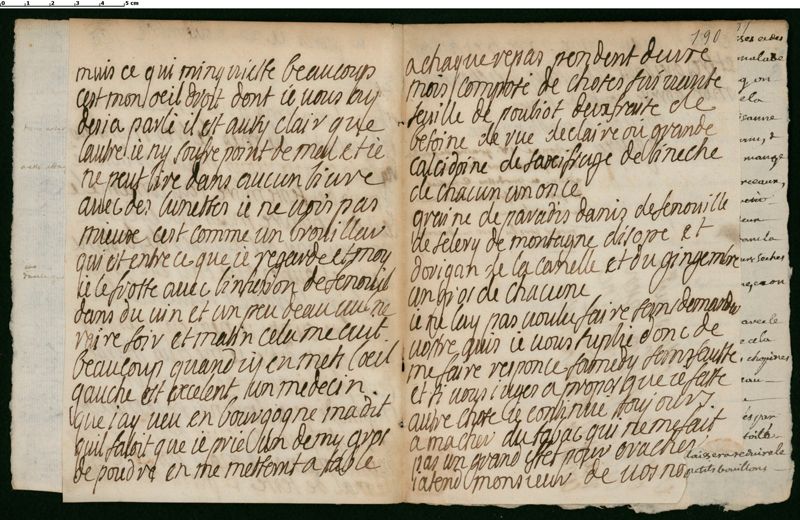 mais ce qui minquiette beaucoup
cest mon oeil droit dont ie vous ay
desia parlé il est aussy clair que
lautre ie ny soufre point de mal et ie
ne peut lire dans aucun livre
avec des lunettes ie ne vois pas
mieux cest comme un brouillar
qui est entre ce que ie regarde et moy
ie le frotte avec linfusion de fenouil
dans du vin et un peu deau
soir et matin cela me cuit
beaucoup quand i en mets loeil
gauche est excelent un medecin
que iay veu en bourgogne ma dit
quil faloit que ie pris un demy gros
de poudre en me mettant a table
190
a chaque repas pendent deux
mois composé de choses suivante
feuille de pouliot deufraise de
betoine de rue declaire ou grande
calcidoine de saxifrage de lineche
de chacun un once
graine de paradis danis de fenouille
de selery de montagne disope et
dorigan de la canelle et du gingembre
un gros de chacune
ie ne lay pas voulu faire sans demander
vostre avis ie vous suplie donc de
me faire responce samedy sans faute
et si vous iuges a propos que ie fasse
autre chose ie continue toujours
a macher du tabac qui ne me fait
pas un grand effet pour cracher
iatend monsieur de vos no
malade
on
la
mange
la
avec le
cela
chopines
eau
par
toile
laissera
petits bouillons